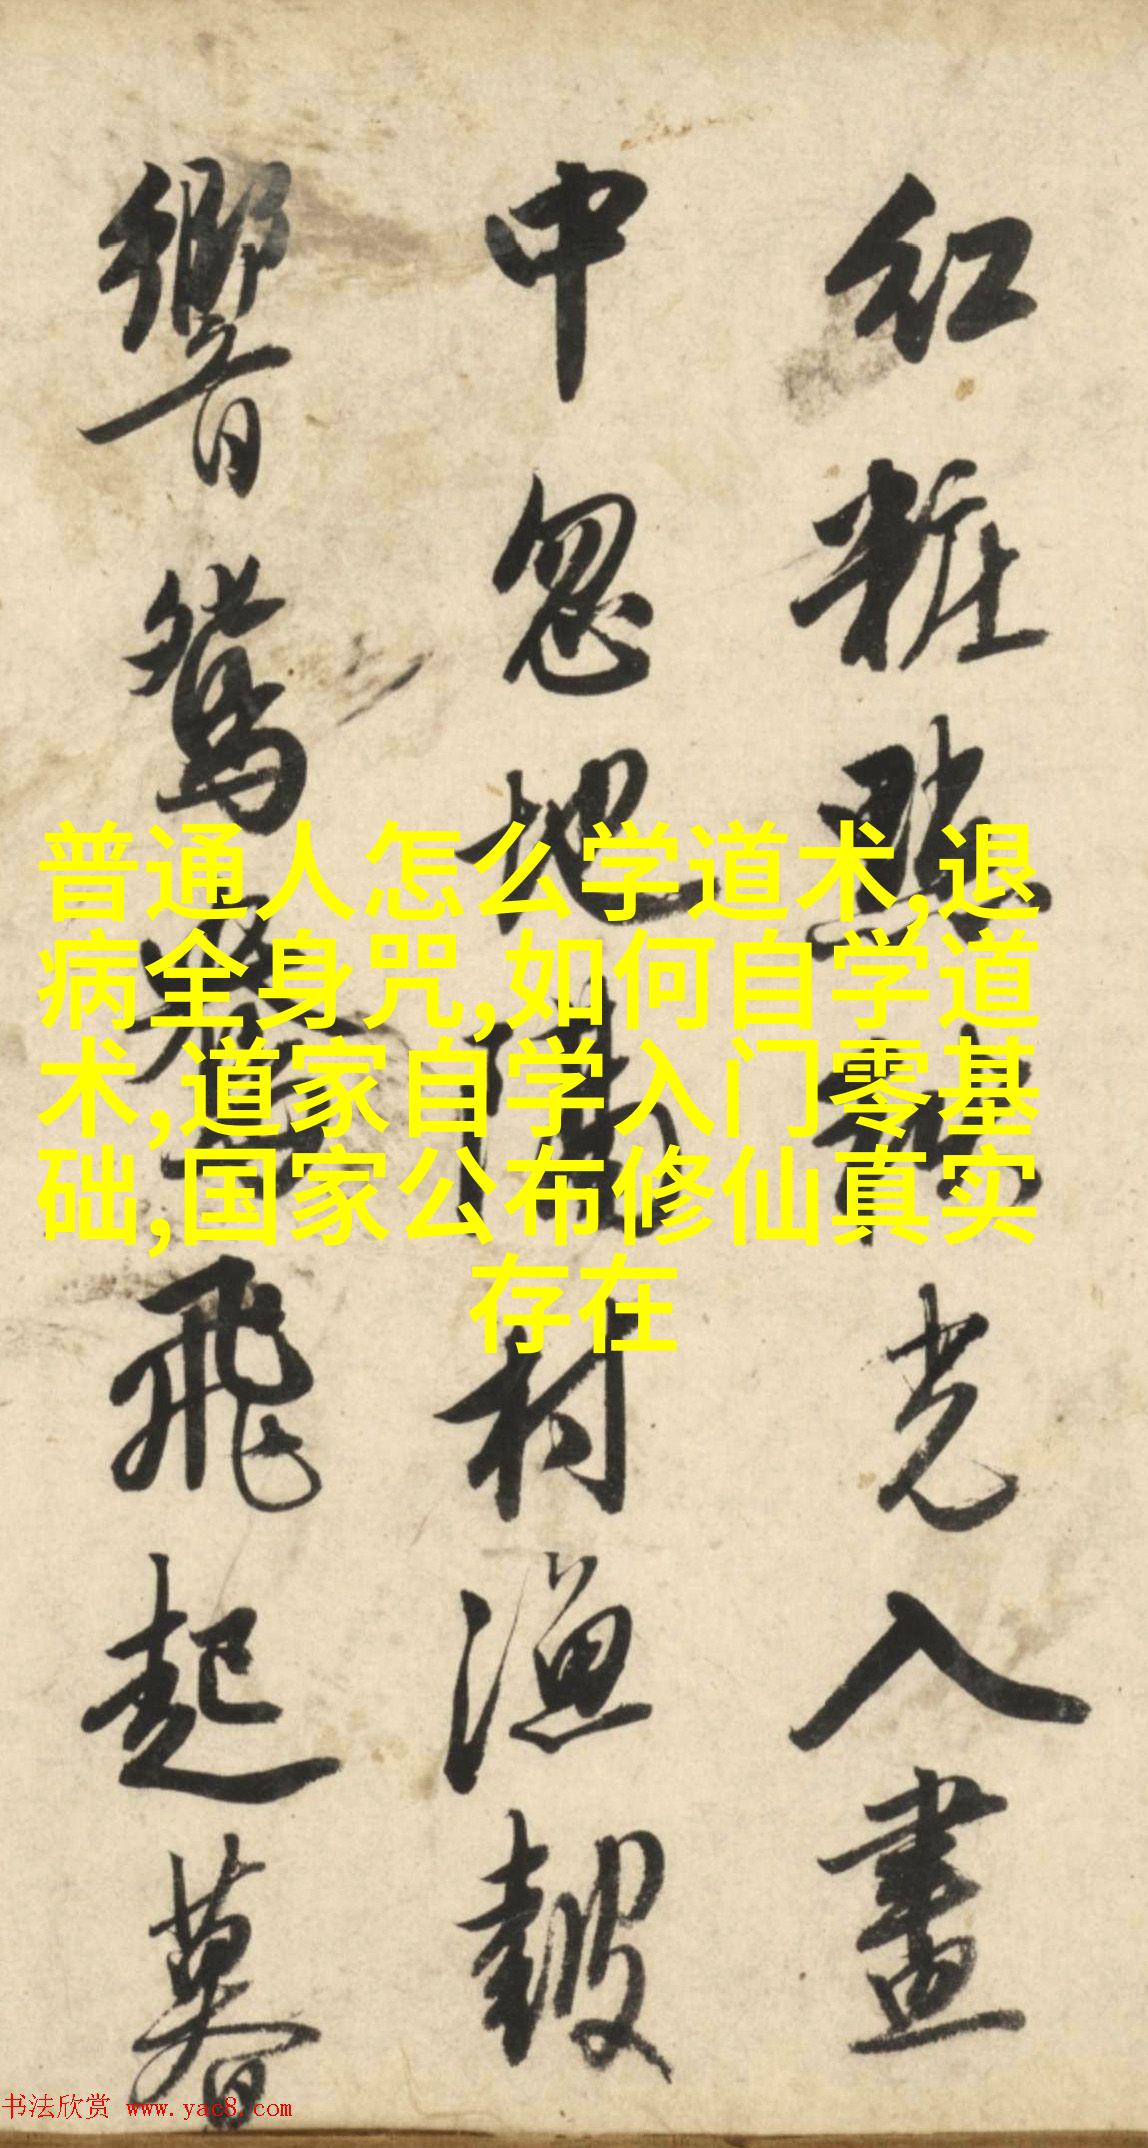 紅粧點秋光入畫
中忽地隔村漁鼓
響鴛鴦飛起暮
普通人怎么学道术,退
病全身咒,如何自学道
术,道家自学入门零基
础,国家公布修仙真实
存在
书法欣赏 www.yac8.com